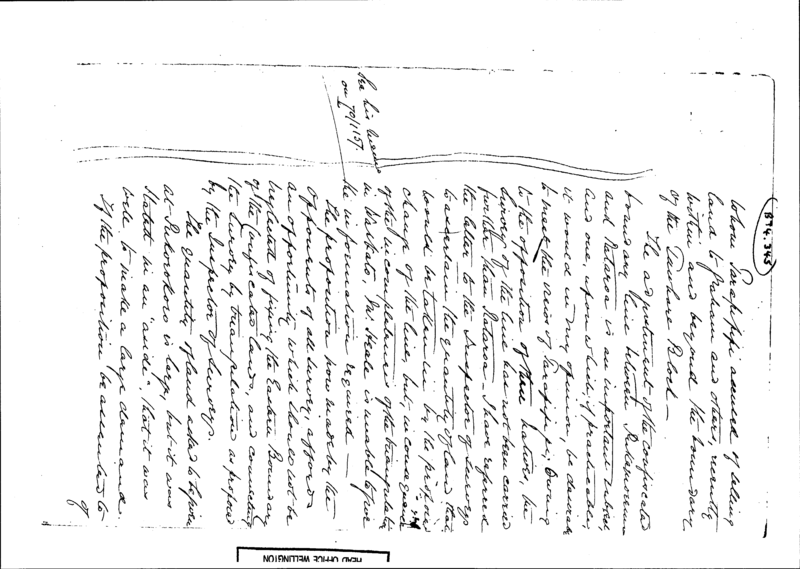 B74.343
whom Parapipi accused of selling
land to Graham and others, recently
within and beyond the boundary
of the Tauhare Block —
The adjustment of the confiscated
boundary line between
and Pataroa is an important subject
and one, upon which, if practicable,
it would in my opinion, be desirable
to meet the views of Parapipi; Owing
to the opposition of these natives, the
Survey of the line has not been carried
further than Pataroa. I have referred
the letter to the Inspector of Surveys
to ascertain the quantity of land that
would be taken in by the proposed
change of the line, but, in consequence
of the incompleteness of the triangulation
in Waikato, Mr Heale is unable to give
the information required —
See his
on 70/1157.
The proposition now made by the
opponents of all survey, affords
an opportunity which should not be
neglected of fixing the Eastern Boundary
of the Confiscated lands, and connecting
the Survey by triangulation as proposed
by the Inspector of Surveys.
The quantity of land asked to be given
at Puhorokoro is large, but it was
stated in an "aside", that it was
well to make a large demand.
If the proposition be assented to
of
HEAD OFFICE WELLINGTON